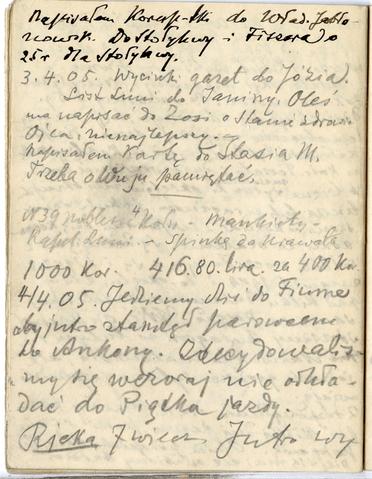 Napisałem Koresp-tki do Wład. Jabło-
nowsk. Do Stołykwy i Fiszera
25 r dla Stołykwy.
3.4.05. Wycinki gazet do Józia.
List Luni do Janiny. Oleś
ma napisać do Zosi o stanie zdrowia
Ojca, nienajlepszy.
Napisałem Kartę do Stasia M.
Trzeba o Wuju pamiętać.
Mankiety
Kapel. Luni. - Spinkę do Krawata
1000 Kor. 416.80. lira. za 400 Kor.
4/4.05. Jedziemy dziś do Fiume
aby jutro stamtąd parowcem
do Ankony. Zdecydowaliś-
my się wczoraj nie odkła-
dać do Piątku jazdy.
Rjeka 7 wiecz Jutro wy